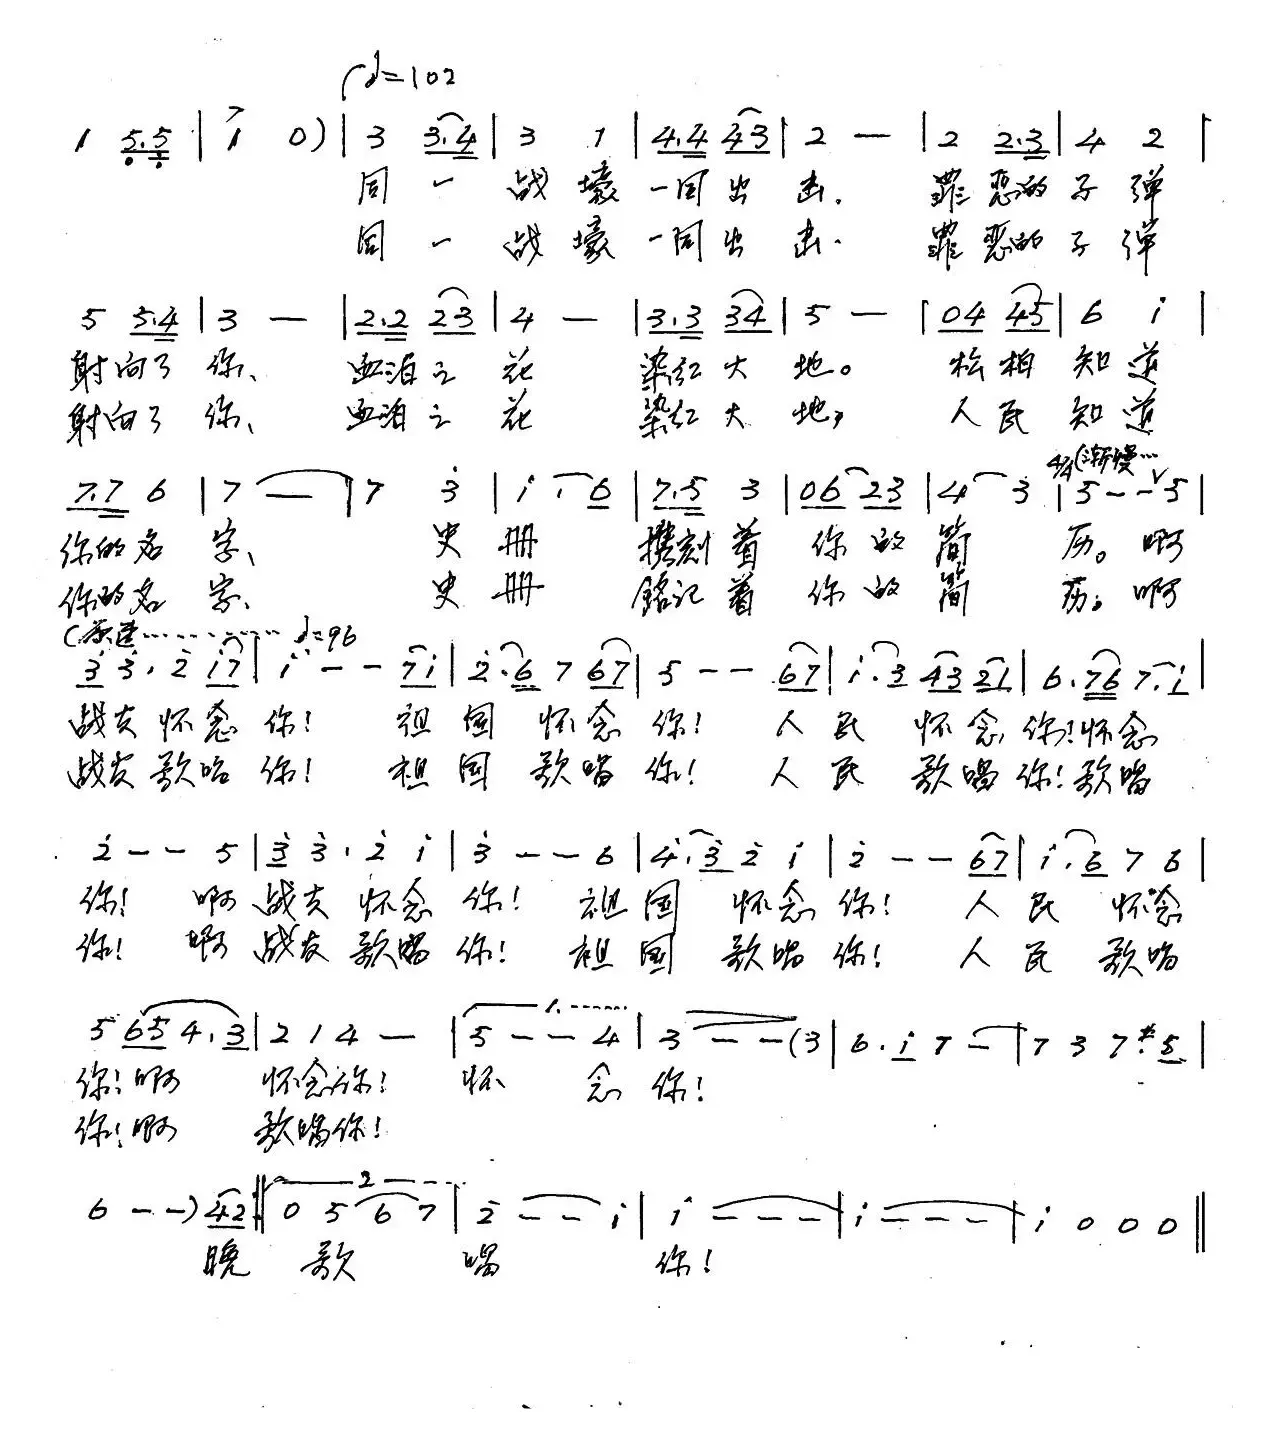 ♩=102
1 5.5 | 1 0) | 3 3.4 | 3 1 | 4.4 43 | 2 — | 2 2.3 | 4 2 |
同 一 战 壕 一同 出 击. 罪 恶的 子 弹
同 一 战 壕 一同 出 击. 罪 恶的 子 弹
5 5.4 | 3 — | 2.2 23 | 4 — | 3.3 34 | 5 — | 04 45 | 6 i |
射向了 你、 血泊之 花 染红大 地。 松 柏 知 道
射向了 你、 血泊之 花 染红大 地, 人 民 知 道
4/4(渐慢…
7.7 6 | 7 — | 7 3 | i . 6 | 7.5 3 | 06 23 | 4 3 | 5 - - 5 |
你的名 字、 史 册 携刻着 你 的 简 历。啊
你的名 字、 史 册 銘记着 你 的 简 历; 啊
(原速………… ♩=96
3 3 . 2 i7 | i - - 7i | 2 . 6 7 67 | 5 - - 67 | i . 3 43 21 | 6 . 76 7.i |
战友 怀念 你! 祖 国 怀念 你! 人 民 怀念 你!怀念
战友 歌唱 你! 祖 国 歌唱 你! 人 民 歌唱 你!歌唱
2 - - 5 | 3 3 . 2 i | 3 - - 6 | 4 . 3 2 i | 2 - - 67 | i . 6 7 6 |
你! 啊 战友 怀念 你! 祖国 怀念 你! 人 民 怀念
你! 啊 战友 歌唱 你! 祖国 歌唱 你! 人 民 歌唱
1.
5 65 4 . 3 | 2 1 4 — | 5 - - 4 | 3 - - (3 | 6 . i 7 - | 7 3 7 #5 |
你!啊 怀念你! 怀 念 你!
你!啊 歌唱你!
2
6 - -) 42 :‖ 0 5 6 7 | 2 - - i | i - - - | i - - - | i 0 0 0 ‖
晚 歌 唱 你!